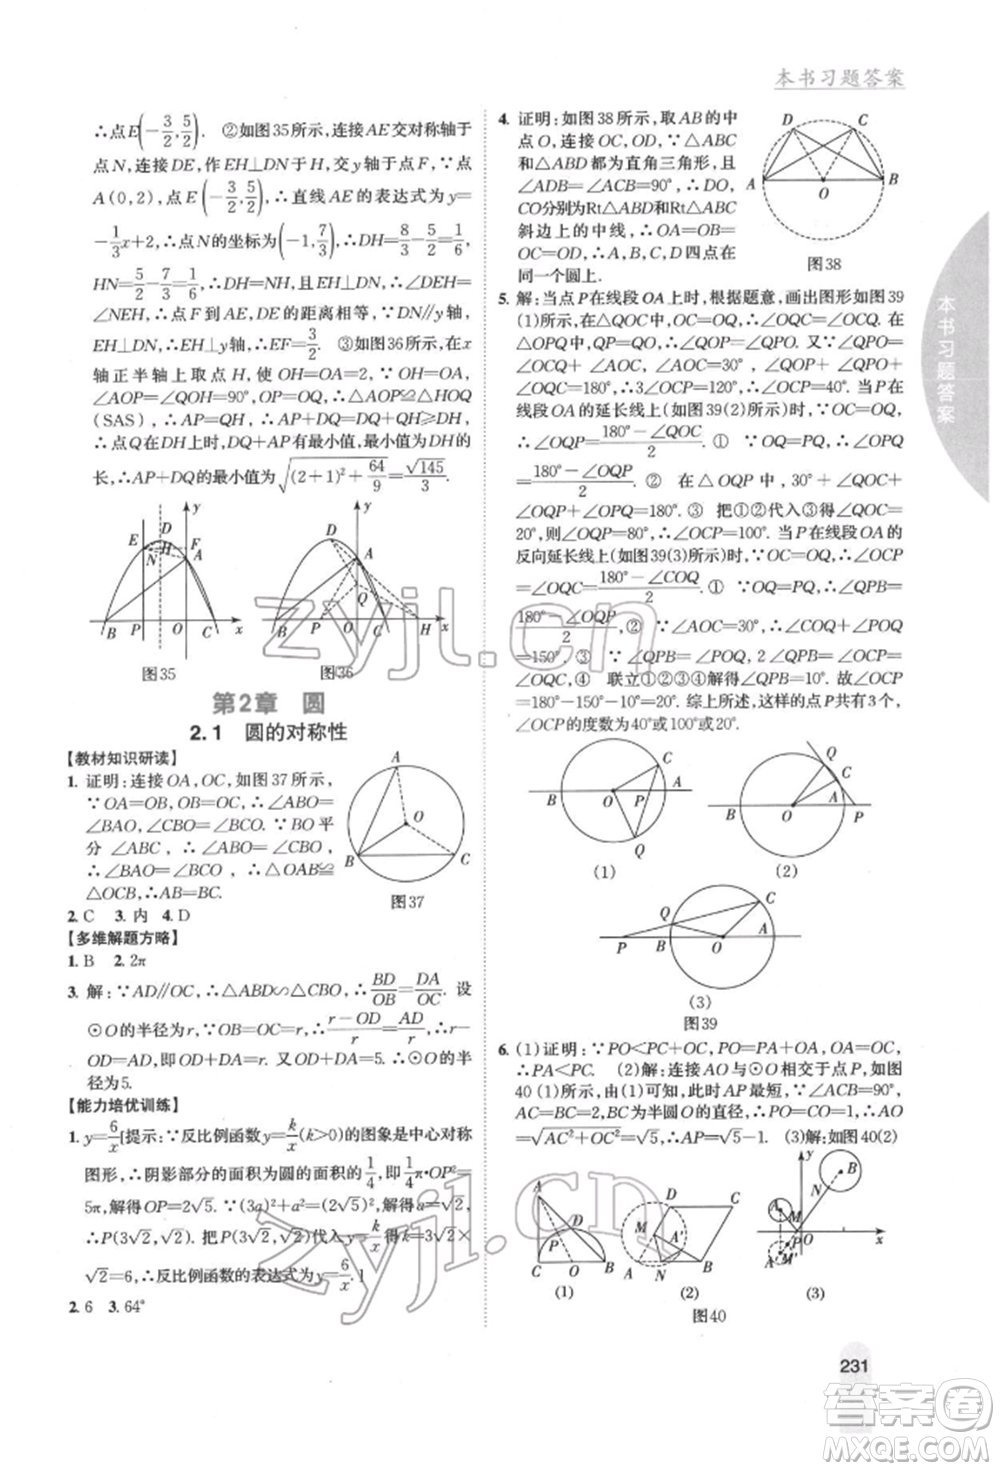 本书习题答案
∴点E(-3/2,5/2). ②如图35所示,连接AE交对称轴于
点N,连接DE,作EH⊥DN于H,交y轴于点F,∵点
A(0,2),点E(-3/2,5/2),∴直线AE的表达式为y=
-1/3x+2,∴点N的坐标为(-1,7/3),∴DH=8/3-5/2=1/6,
HN=5/2-7/3=1/6,∴DH=HN. ∵EH⊥DN,∴∠DEH=
∠NEH,∴点F到EN、DE的距离相等,∵DN∥y轴,
EH⊥DN,∴EH⊥y轴,∴EF=3/2. ③如图36所示,在x
轴正半轴上取点H,使OH=OA,∵OH=OA,
∠AOP=∠HOQ=90°,OP=OQ,∴△AOP≌△HOQ
(SAS),∴AP=QH,∴AP+DQ=DQ+QH≥DH,
∴点Q在DH上时,DQ+AP有最小值,最小值为DH的
长,∴AP+DQ的最小值为√((2+1)²+64/9)=√145/3.
y
E
D
H
F
N
A
B
P
O
C
x
图35
D
y
A
Q
B
P
O
C
H
x
图36
第2章 圆
2.1 圆的对称性
【教材知识研读】
1. 证明:连接OA,OC,如图37所示,
∵OA=OB,OB=OC,∴∠ABO=
∠BAO,∠CBO=∠BCO. ∵BO平
分∠ABC,∴∠BAO=∠BCO,∴△OAB≌
△OCB,∴AB=BC.
A
O
B
C
图37
2. C 3. 内 4. D
【多维解题方略】
1. B 2. 2π
3. 解:∵AD∥OC,∴△ABD∽△OBC,∴BD/OB=DA/OC. 设
⊙O的半径为r,∵OB=OC=r,∴(r-OD)/r=AD/r,∴r-
OD=DA,即OD+DA=r. 又OD+DA=5. ∴⊙O的半
径为5.
【能力培优训练】
1. y=6/x[提示:∵反比例函数y=k/x(k>0)的图象是中心对称
图形,∴阴影部分的面积为圆的面积的1/4,∴1/4π•OP²=
5π,解得OP=2√5. ∵(3a)²+a²=(2√5)²,解得a=√2,
∴P(3√2,√2),将P(3√2,√2)代入y=k/x得k=3√2×
√2=6,∴反比例函数的表达式为y=6/x.]
2. 6 3. 64°
4. 证明:如图38所示,取AB的中
点O,连接OC,OD,∵△ABC
和△ABD都为直角三角形,且
∠ADB=∠ACB=90°,∴DO,
CO分别为Rt△ABD,Rt△ABC
斜边上的中线,∴OA=OB=
OC=OD,∴A,B,C,D四点在
同一个圆上.
D
C
A
O
B
图38
5. 解:当点P在线段OA上时,根据题意,画出图形如图39
(1)所示,在△QOC中,OC=OQ,∴∠OQC=∠OCQ. 在
△OPQ中,QP=QO,∴∠QOP=∠QPO. ∵∠QPO=
∠OCQ+∠AOC,∠AOC=30°,∠QOP+∠QPO+
∠OQC=180°,∴3∠OCP=120°,∴∠OCP=40°. 当P在
线段OA的延长线上时(如图39(2)所示)时,∵OC=OQ,
∴∠OQP=(180°-∠QOC)/2. ① ∵OQ=PQ,∴∠OPQ
=(180°-∠OQP)/2. ② 在△OQP中,30°+∠QOC+
∠OQP+∠OPQ=180°. ③ 把①②代入③得∠QOC=
20°,则∠OQP=80°,∴∠OCP=100°. 当P在线段OA的
反向延长线上(如图39(3)所示)时,∵OC=OQ,∴∠OCP
=∠OQC=(180°-∠COQ)/2. ① ∵OQ=PQ,∴∠QPB=
(180°-∠OQP)/2. ② ∵∠AOC=30°,∴∠COQ+∠POQ
=150°. ③ ∵∠POQ=∠QPB,∠OQC=∠QPB+
∠POQ. ④ 联立①②③④解得∠QPB=10°,∴∠OCP
=2∠QPB=20°. 综上所述,这样的点P共有3个,
∠OCP的度数为40°或100°或20°.
C
B
O
P
A
Q
(1)
Q
C
B
O
A
P
(2)
Q
C
P
B
O
A
(3)
图39
6. (1)证明:∵PO<PC+OC,PO=PA+OA,OA=OC,
∴PA<PC. (2)解:连接AO与⊙O相交于点P,如图
40(1)所示,由(1)可知,此时AP最短,∵∠ACB=90°,
AC=BC=2,BC为半圆O的直径,∴PO=CO=1,∴AO
=√(AC²+OC²)=√5,∴AP=√5-1. (3)解:如图40(2)
A
P
C
O
B
(1)
D
C
M
A′
A
N
B
(2)
y
B
N
A
M
P
O
M′
A′
x
(3)
图40
本书习题答案
231
zyjl.cn
zyjl.cn
答案圈
MXQE.COM